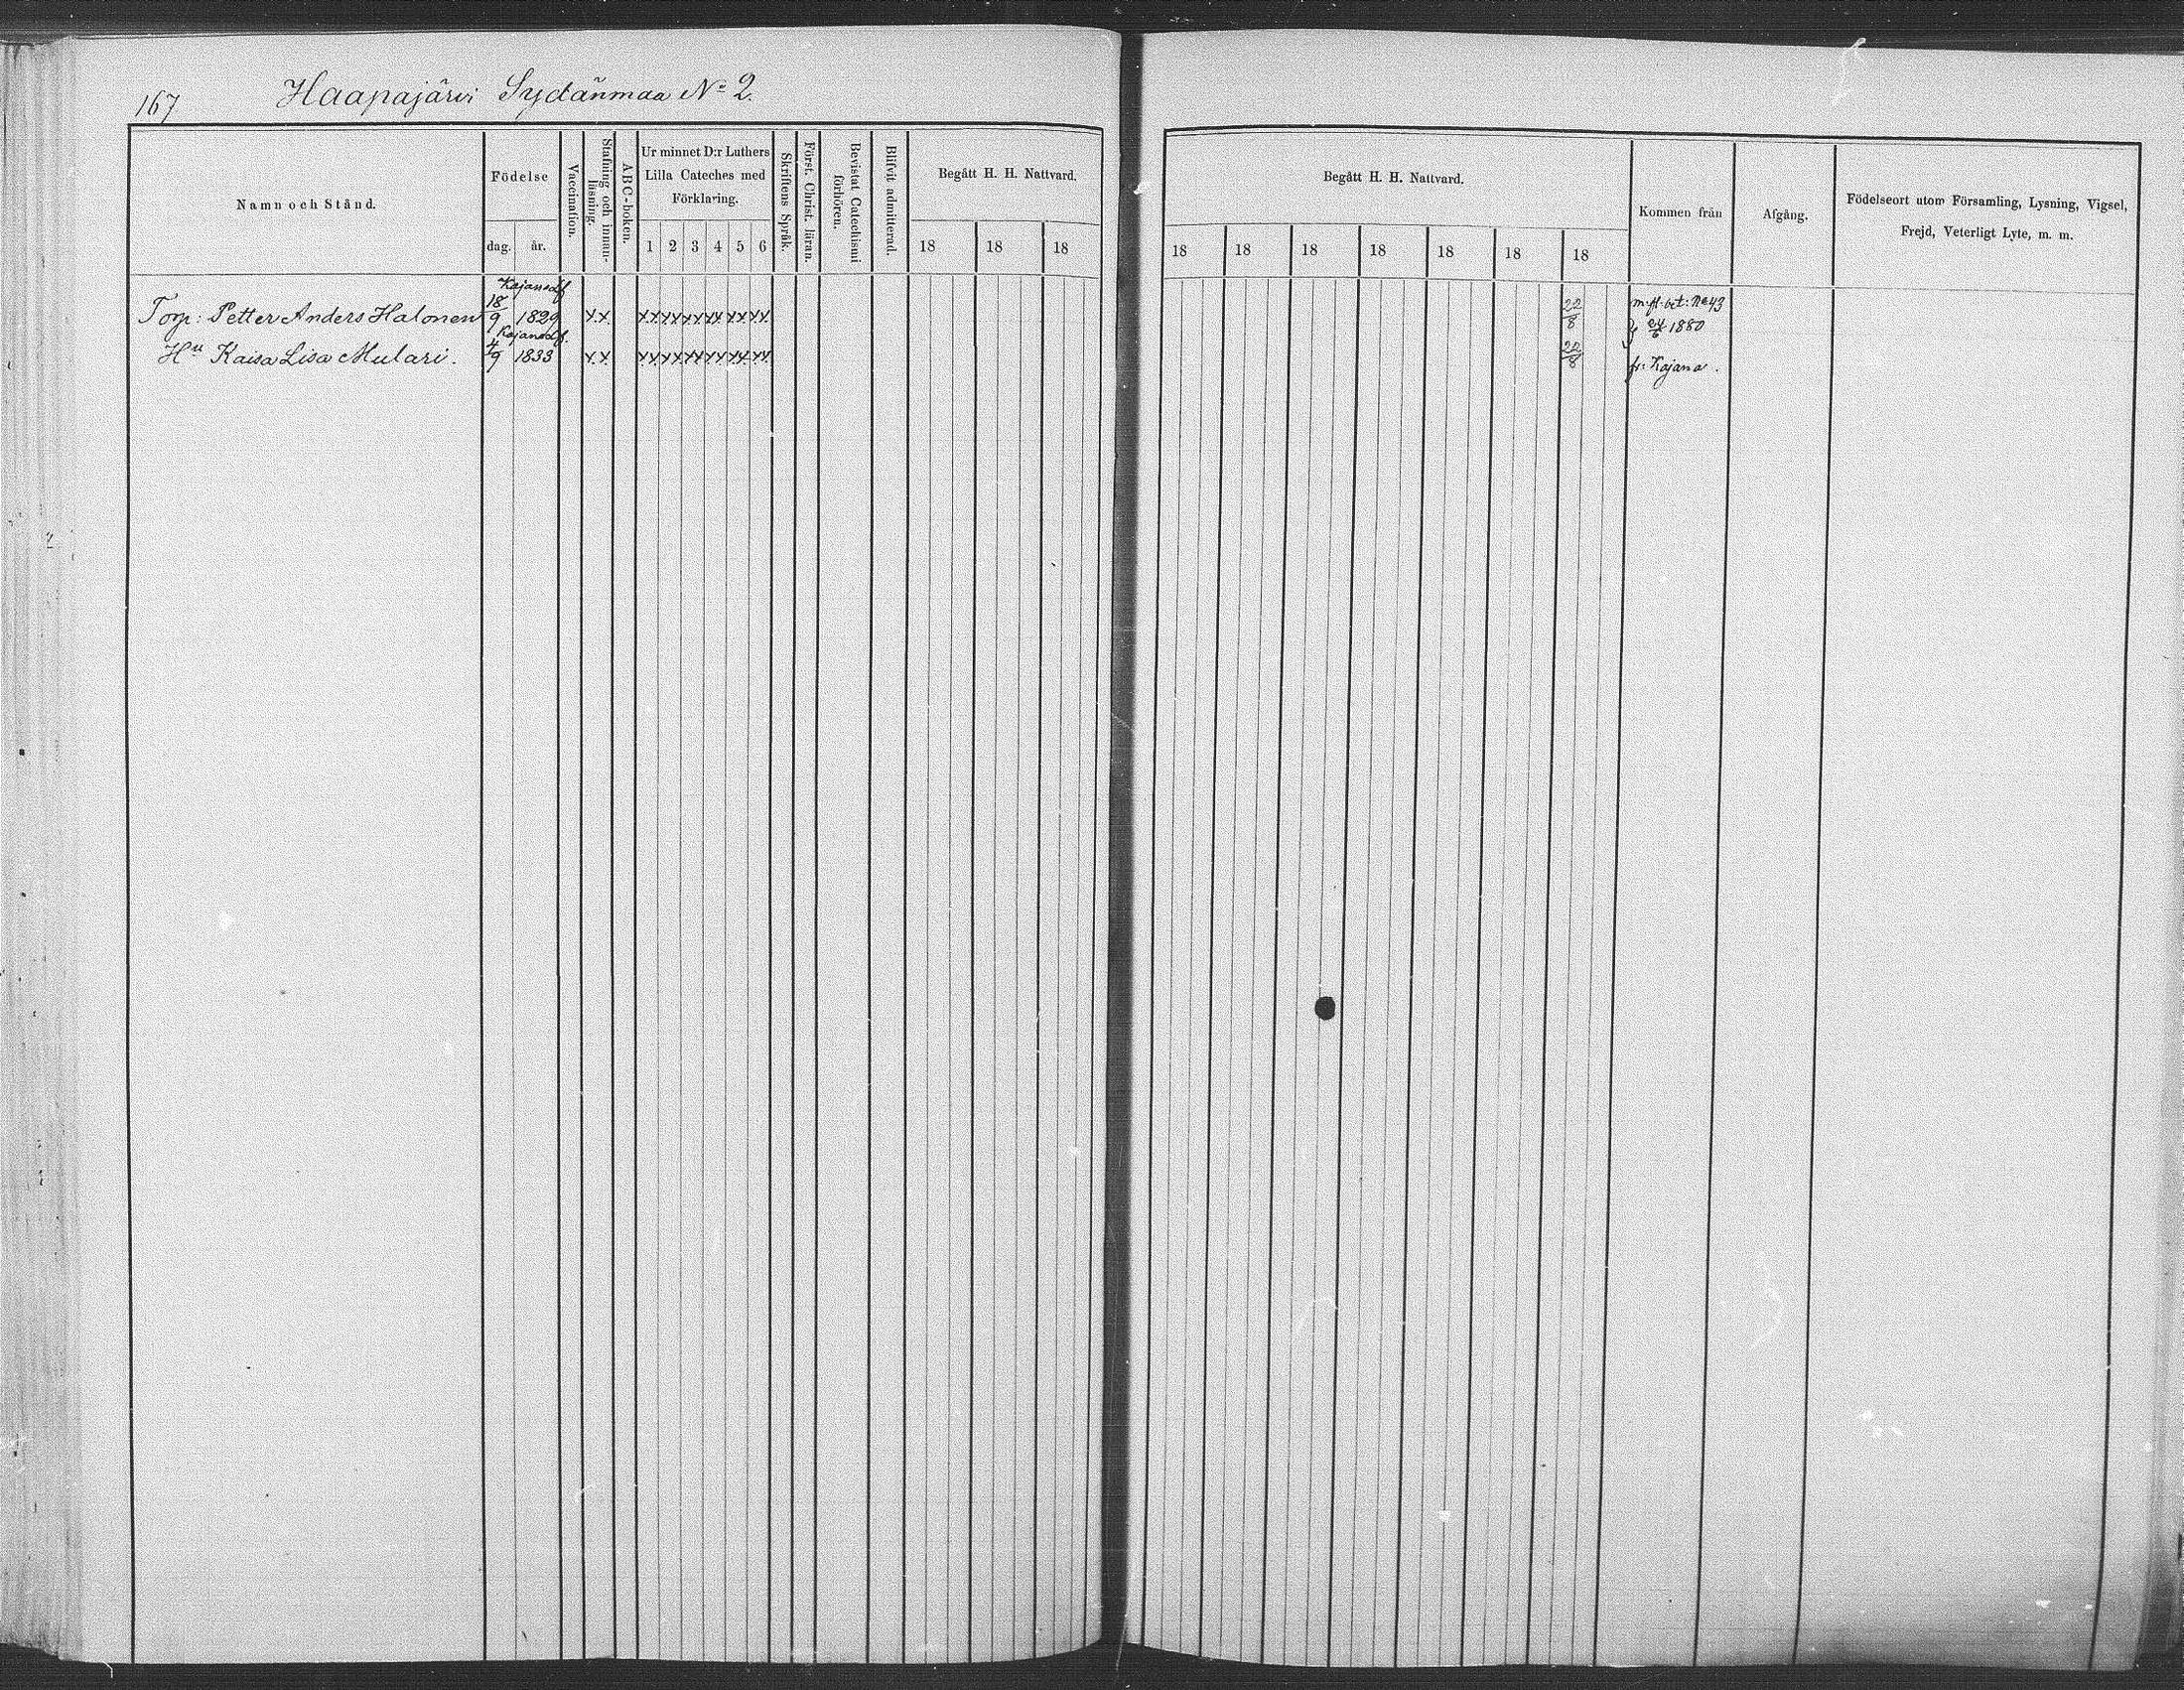 167 Haapajärvi Sydänmaa No 2.
Namn och Stånd.
Födelse
dag. år.
Vaccination.
Stafning och innan-
läsning.
ABC-boken.
Ur minnet D:r Luthers
Lilla Cateches med
Förklaring.
1 2 3 4 5 6
Skriftens Språk.
Först. Christ. läran.
Bevistat Catechismi
förhören.
Blifvit admitterad.
Begått H. H. Nattvard.
18 18 18
Begått H. H. Nattvard.
18 18 18 18 18 18 18
Kommen från
Afgång.
Födelseort utom Församling, Lysning, Vigsel,
Frejd, Veterligt Lyte, m. m.
Kajanself
Torp: Petter Anders Halonen 18/9 1829 xx xx xx xx xx xx xx 22/8 m. fl. bet: No 43
1880
Kajanself.
Hu Kaisa Lisa Mulari. 4/9 1833 xx xx xx xx xx xx xx 22/8 fr: Kajana.